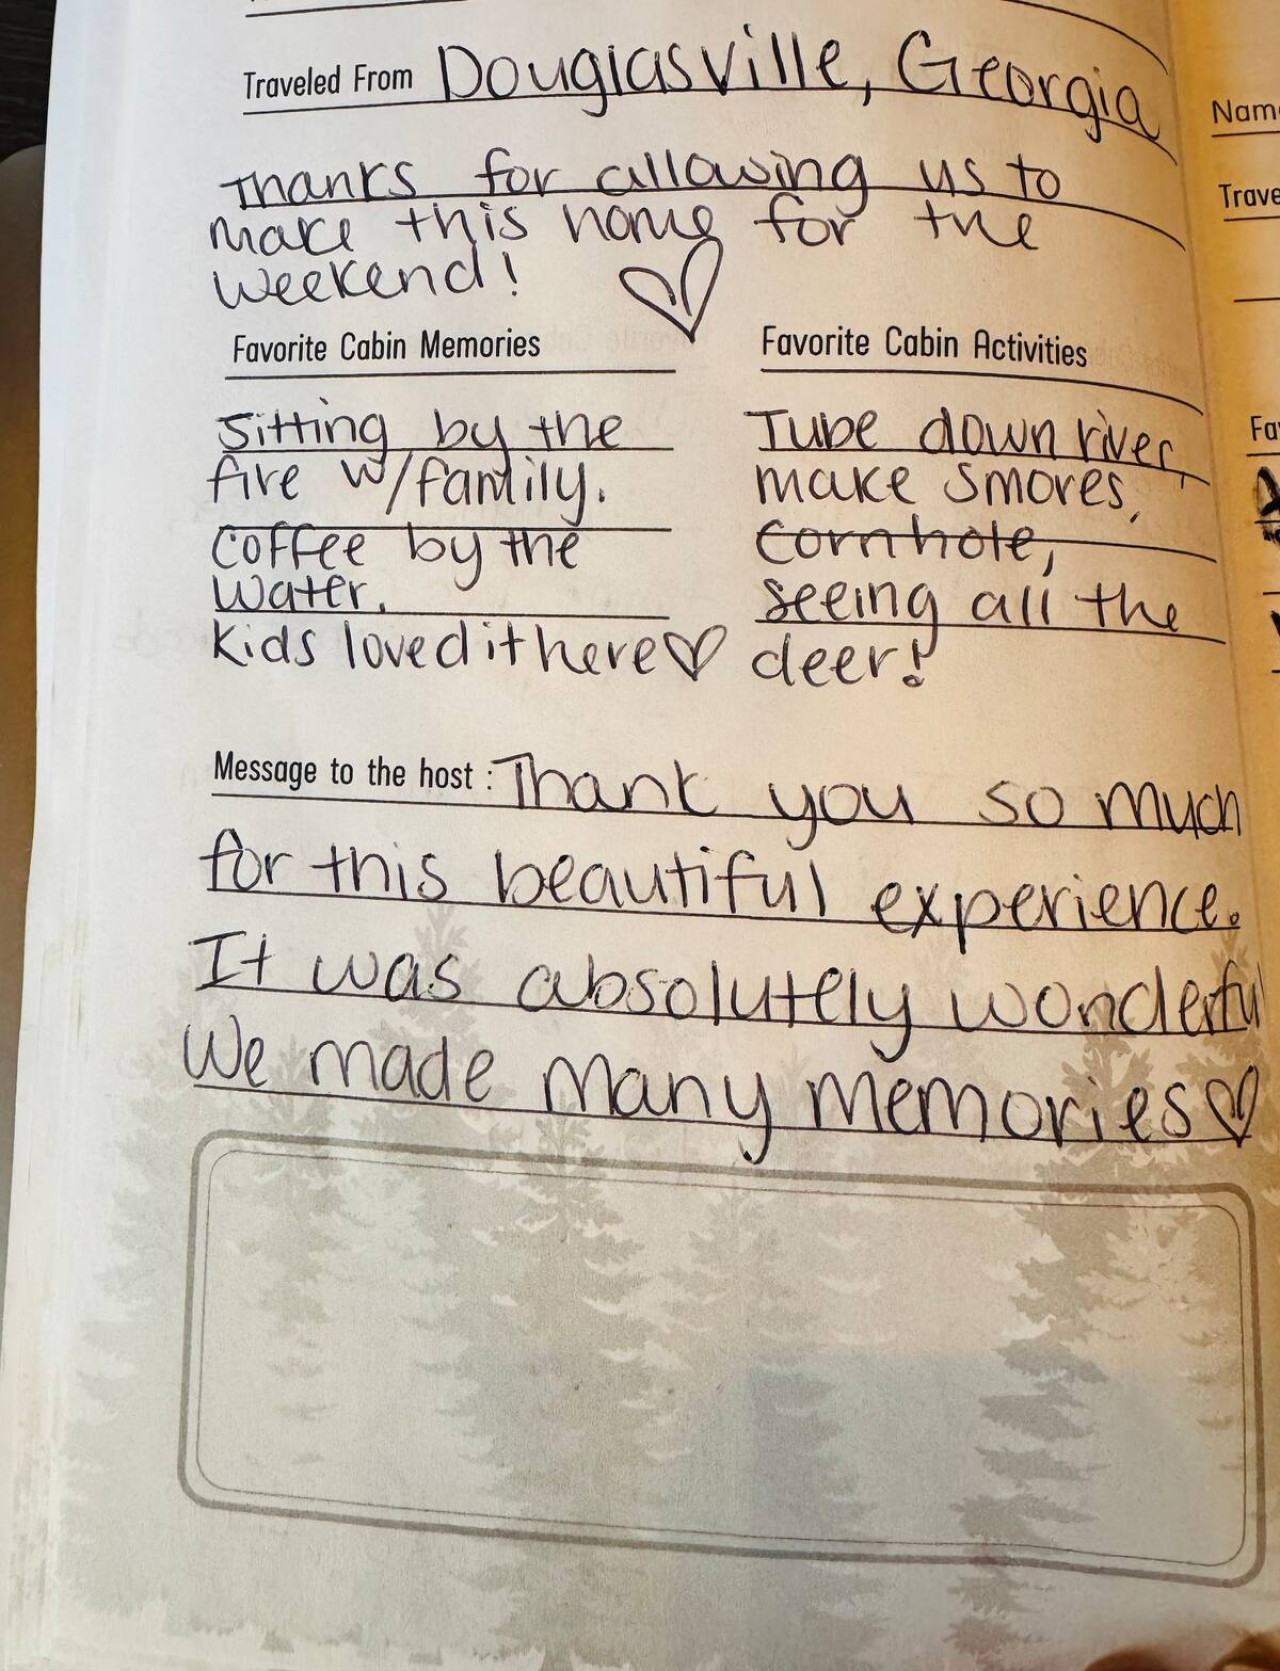 Traveled From Douglasville, Georgia
Thanks for allowing us to
make this home for the
weekend!
Favorite Cabin Memories
Sitting by the
fire w/family.
Coffee by the
water.
Kids loved it here
Favorite Cabin Activities
Tube down river,
make smores,
Cornhole,
seeing all the
deer!
Message to the host : Thank you so much
for this beautiful experience.
It was absolutely wonderful
We made many memories
Nam
Trave
Fa